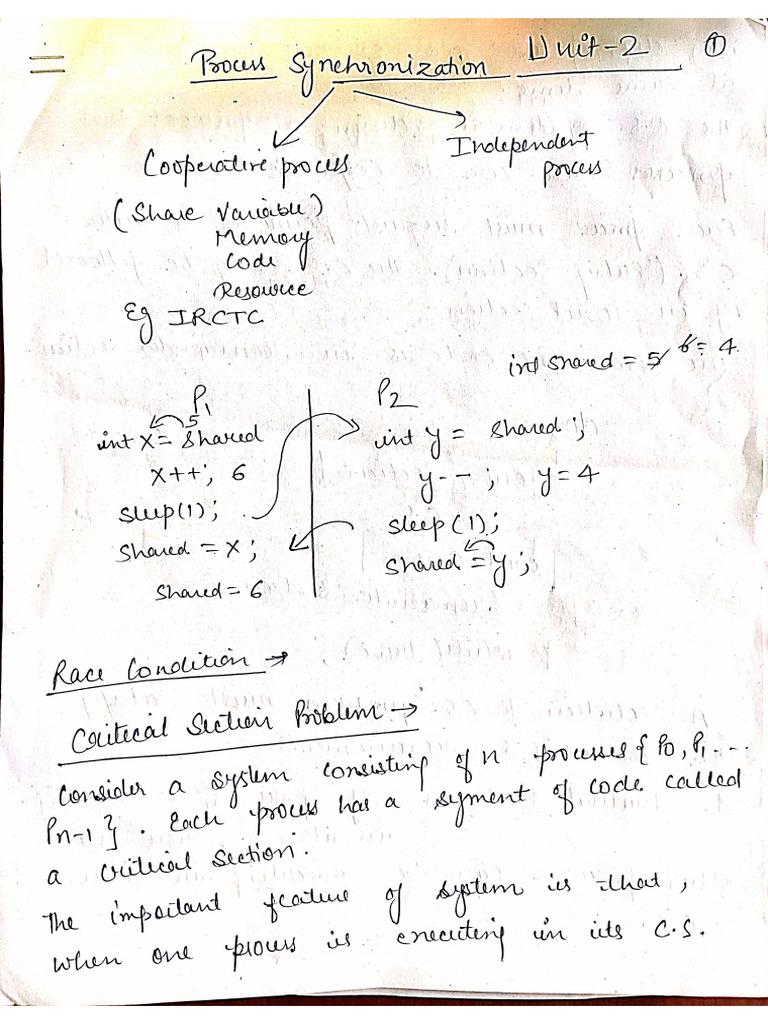 Unit-2 ①
Process Synchronization
Cooperative process
Independent process
(Share Variable)
Memory
Code
Resource
Eg IRCTC
int shared = 5 6 = 4
P1
5
int x = shared
x++; 6
sleep(1);
shared = x;
shared = 6
P2
int y = shared;
y--; y=4
sleep(1);
shared = y;
Race Condition →
Critical Section Problem →
Consider a system consisting of n processes { P0, P1 ...
Pn-1 }. Each process has a segment of code called
a critical section.
The important feature of system is that,
when one process is executing in its C.S.